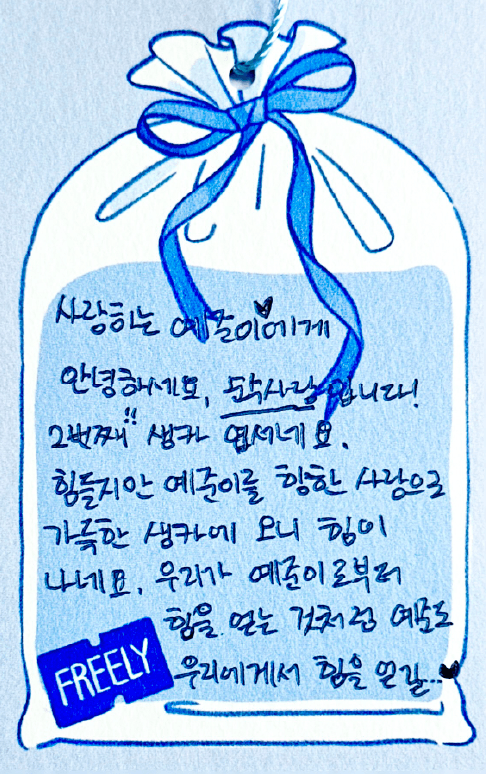 사랑하는 예준이에게
안녕하세요, 둔속사랑입니다!
2번째 생카 엽서네요.
힘들지만 예준이를 향한 사랑으로
가득한 생카에 오니 힘이
나네요. 우리가 예준이로부터
힘을 얻는 것처럼 예준도
우리에게서 힘을 얻길...
FREELY